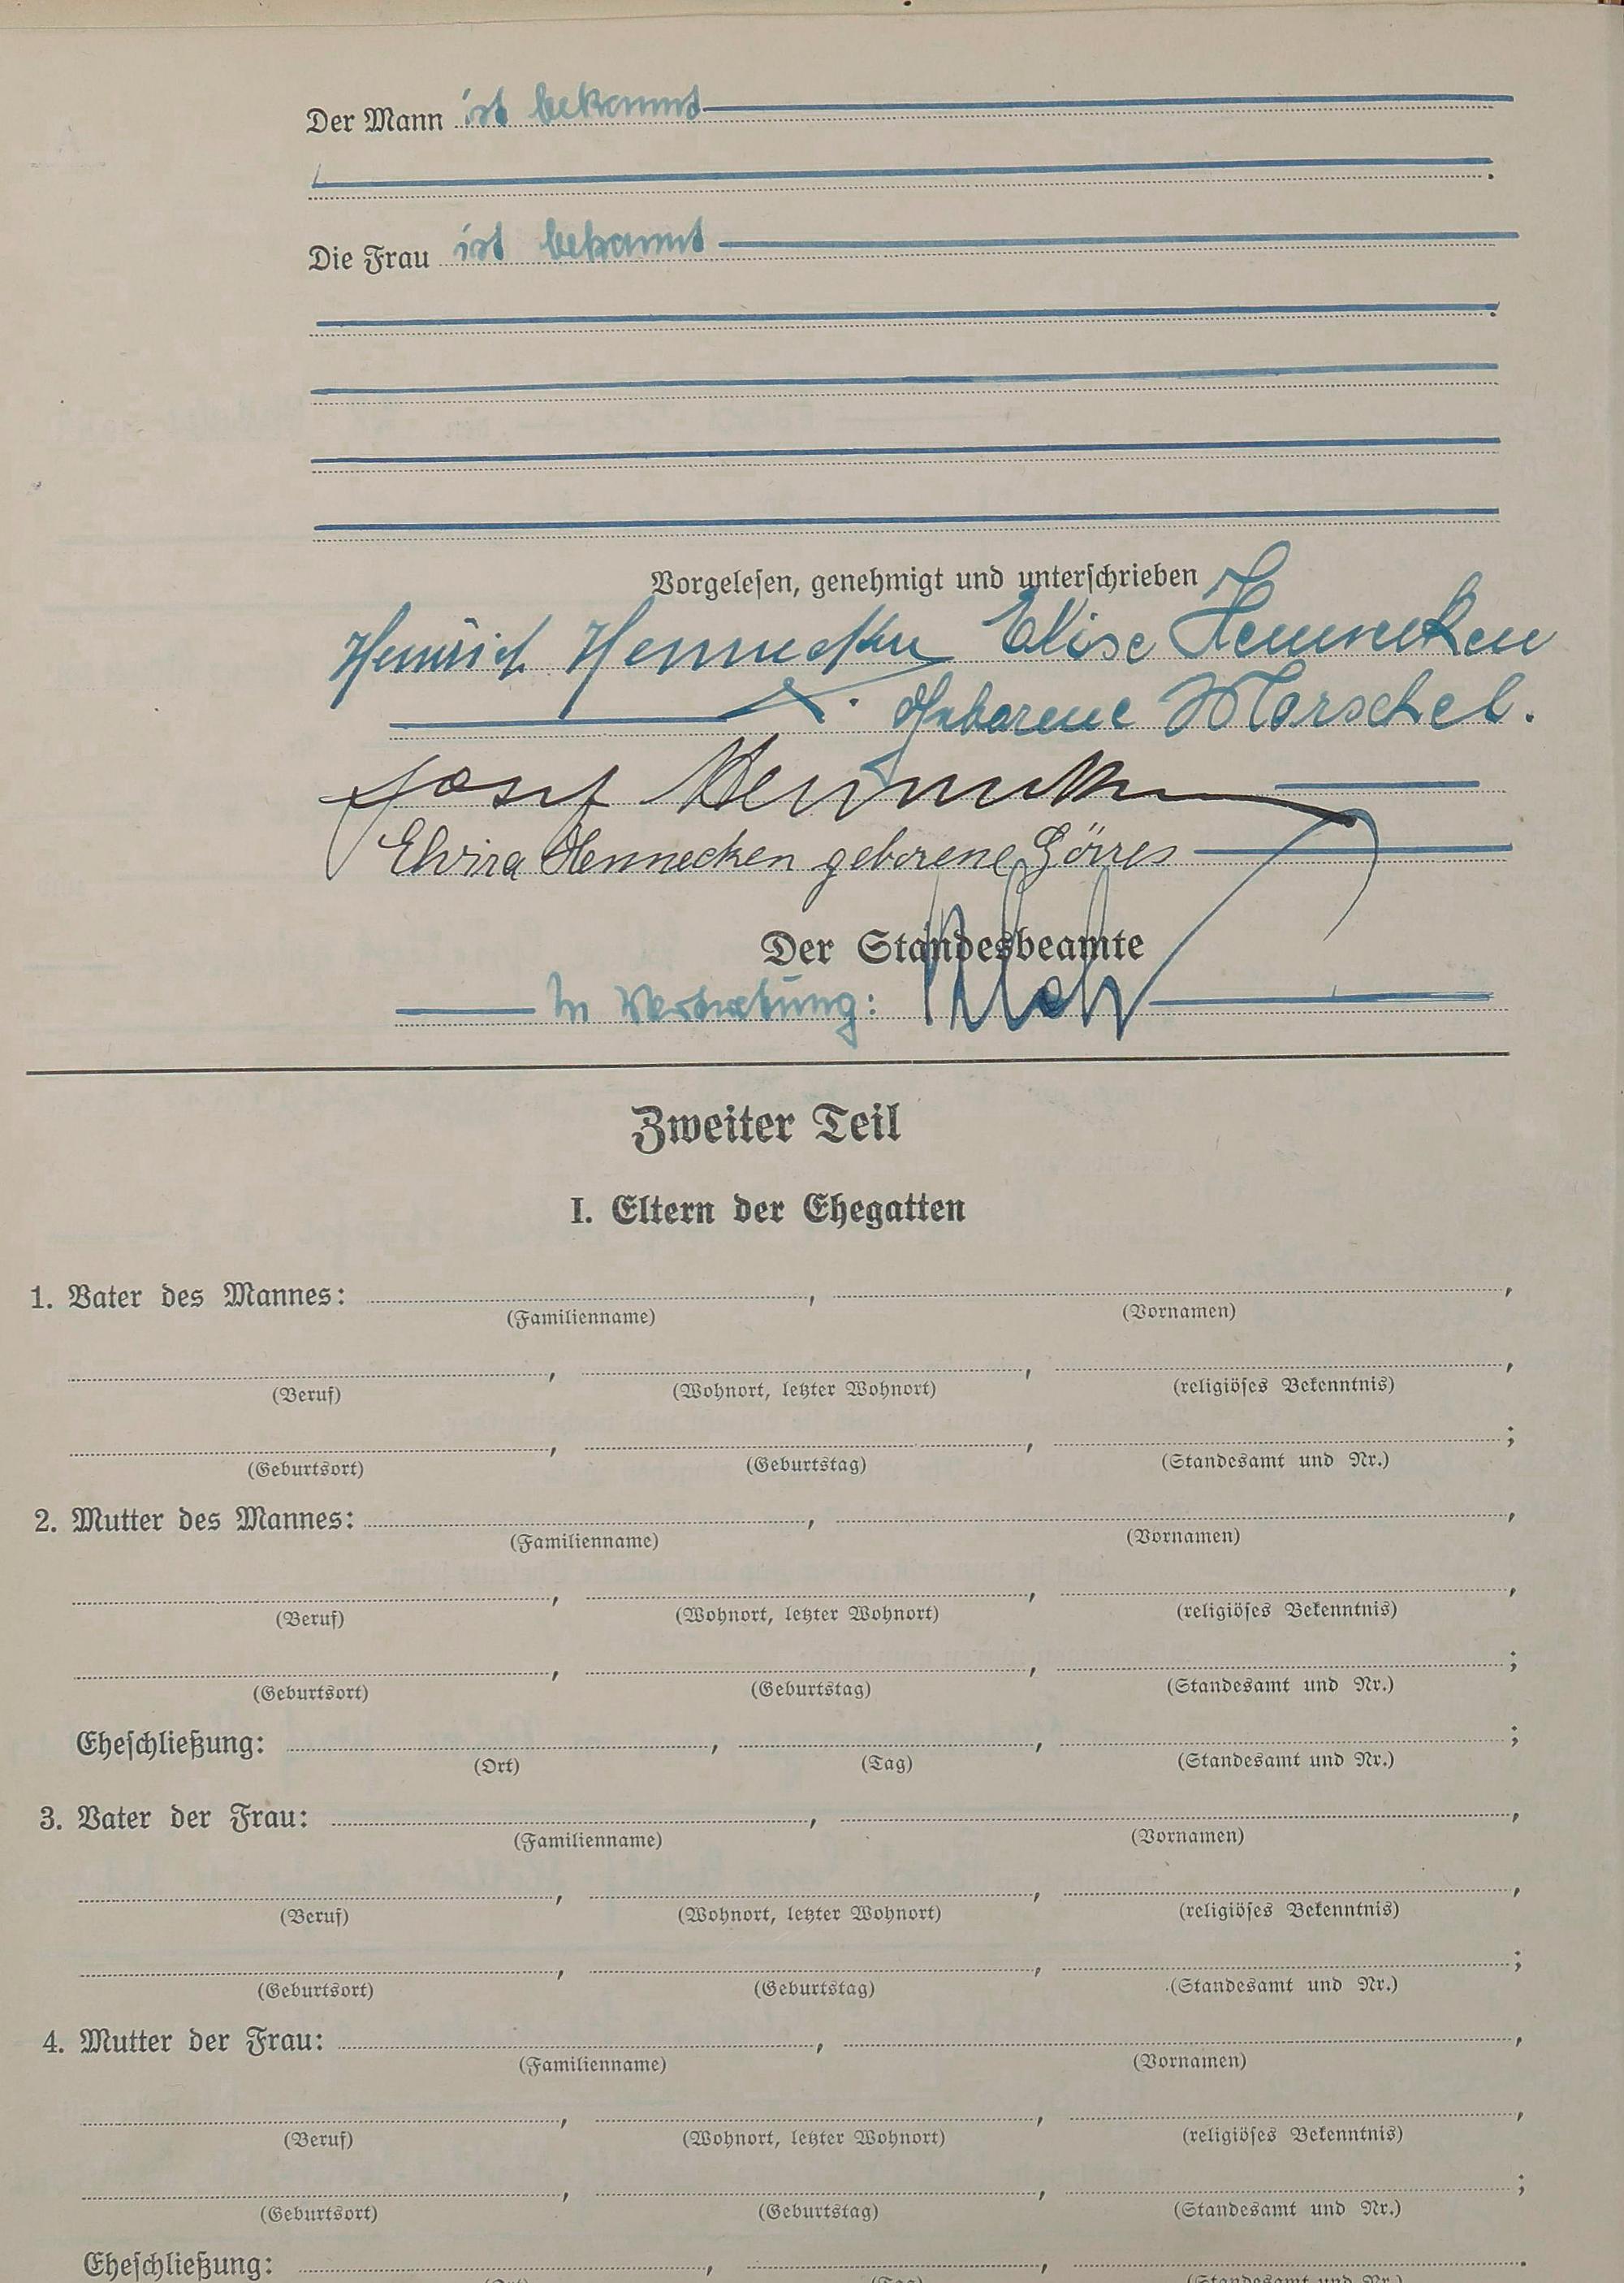 Der Mann ist bekannt
Die Frau ist bekannt
Vorgelesen, genehmigt und unterschrieben
Heinrich Hennecken Elise Hennecken
Geborene Morschel.
Josef Hennecken
Elvira Hennecken geborene Görres
Der Standesbeamte
In Vertretung:
Zweiter Teil
I. Eltern der Ehegatten
1. Vater des Mannes: , ,
(Familienname) (Vornamen)
, , ,
(Beruf) (Wohnort, letzter Wohnort) (religiöses Bekenntnis)
, , ;
(Geburtsort) (Geburtstag) (Standesamt und Nr.)
2. Mutter des Mannes: , ,
(Familienname) (Vornamen)
, , ,
(Beruf) (Wohnort, letzter Wohnort) (religiöses Bekenntnis)
, , ;
(Geburtsort) (Geburtstag) (Standesamt und Nr.)
Eheschließung: , , ;
(Ort) (Tag) (Standesamt und Nr.)
3. Vater der Frau: , ,
(Familienname) (Vornamen)
, , ,
(Beruf) (Wohnort, letzter Wohnort) (religiöses Bekenntnis)
, , ;
(Geburtsort) (Geburtstag) (Standesamt und Nr.)
4. Mutter der Frau: , ,
(Familienname) (Vornamen)
, , ,
(Beruf) (Wohnort, letzter Wohnort) (religiöses Bekenntnis)
, , ;
(Geburtsort) (Geburtstag) (Standesamt und Nr.)
Eheschließung: , , .
(Ort) (Tag) (Standesamt und Nr.)